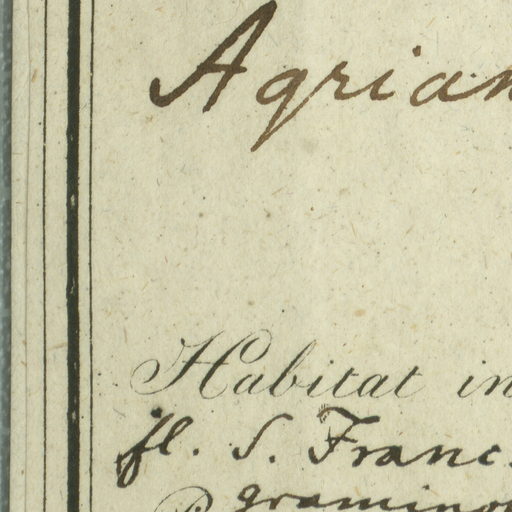 Agrian
Habitat in
fl. S. Franc.
graminos